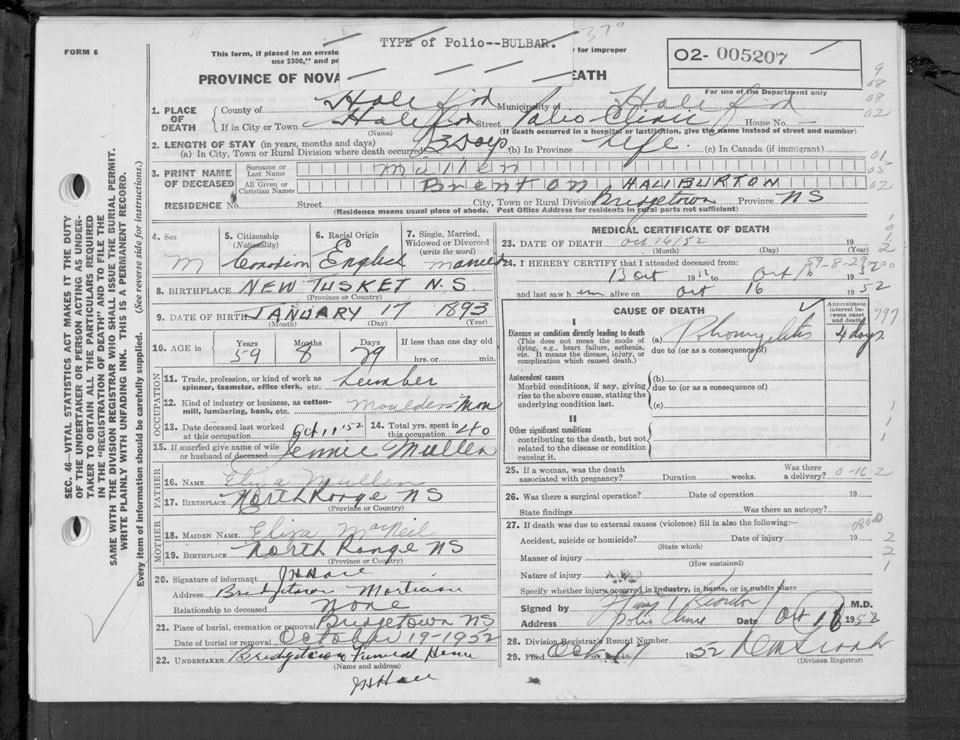 FORM 6
This form, if placed in an envelo
use $300," and pr
TYPE of Polio--BULBAR.
for improper
37
02- 005207
For use of the Department only
PROVINCE OF NOVA
EATH
1. PLACE OF DEATH
County of Halifax Municipality of Halifax
If in City or Town Halifax Street Polio Clinic House No.
(Name) (If death occurred in a hospital or institution, give the name instead of street and number)
2. LENGTH OF STAY (in years, months and days)
(a) In City, Town or Rural Division where death occurred 3 Days (b) In Province Life. (c) In Canada (if immigrant)
3. PRINT NAME OF DECEASED
Surname or Last Name Mullen
All Given or Christian Names Brenton HALIBURTON
RESIDENCE No. Street City, Town or Rural Division Bridgetown Province NS
(Residence means usual place of abode. Post Office Address for residents in rural parts not sufficient)
4. Sex M
5. Citizenship (Nationality) Canadian
6. Racial Origin English
7. Single, Married, Widowed or Divorced (write the word) Married
8. BIRTHPLACE NEW TUSKET N.S
(Province or Country)
9. DATE OF BIRTH JANUARY 17 1893
(Month) (Day) (Year)
10. AGE in Years 59 Months 8 Days 29 If less than one day old hrs. or min.
OCCUPATION
11. Trade, profession, or kind of work as spinner, teamster, office clerk, etc. Lumber
12. Kind of industry or business, as cotton-mill, lumbering, bank, etc. Moulders Man
13. Date deceased last worked at this occupation Oct 11 '52
14. Total yrs. spent in this occupation 40
15. If married give name of wife or husband of deceased Jennie Mullen
FATHER
16. Name Mullen
17. BIRTHPLACE North Range NS
(Province or Country)
MOTHER
18. MAIDEN NAME. Eliza MacNeil
19. BIRTHPLACE North Range NS
(Province or Country)
20. Signature of informant JH Hall
Address Bridgetown Mortician
Relationship to deceased None
21. Place of burial, cremation or removal Bridgetown NS
Date of burial or removal October 19-1952
22. UNDERTAKER Bridgetown Funeral Home
(Name and address)
JH Hall
MEDICAL CERTIFICATE OF DEATH
23. DATE OF DEATH Oct 16/52 19
(Month) (Day) (Year)
24. I HEREBY CERTIFY that I attended deceased from: 59-8-29
13 Oct 19 Oct 16 1952
and last saw him alive on Oct 16 1952
CAUSE OF DEATH
Approximate interval between onset and death
I
Disease or condition directly leading to death
(This does not mean the mode of dying, e.g., heart failure, asthenia, etc. It means the disease, injury, or complication which caused death.)
(a) 4 days
due to (or as a consequence of)
Antecedent causes
Morbid conditions, if any, giving rise to the above cause, stating the underlying condition last.
(b)
due to (or as a consequence of)
(c)
II
Other significant conditions
contributing to the death, but not related to the disease or condition causing it.
25. If a woman, was the death associated with pregnancy? Duration weeks. Was there a delivery? 0-16-2
26. Was there a surgical operation? Date of operation 19
State findings Was there an autopsy?
27. If death was due to external causes (violence) fill in also the following:—
Accident, suicide or homicide? Date of injury 19
(State which)
Manner of injury
(How sustained)
Nature of injury
Specify whether injury occurred in industry, in home, or in public place
Signed by M.D.
Address Polio Clinic Date Oct 16 1952
28. Division Registrar's Record Number
29. Filed Oct 1952
(Division Registrar)
SEC. 46—VITAL STATISTICS ACT MAKES IT THE DUTY
OF THE UNDERTAKER OR PERSON ACTING AS UNDER-
TAKER TO OBTAIN ALL THE PARTICULARS REQUIRED
IN THE "REGISTRATION OF DEATH" AND TO FILE THE
SAME WITH THE DIVISION REGISTRAR WHO SHALL ISSUE THE BURIAL PERMIT.
WRITE PLAINLY WITH UNFADING INK. THIS IS A PERMANENT RECORD.
Every item of information should be carefully supplied. (See reverse side for instructions.)
9
08
08
02
01
05
02
777